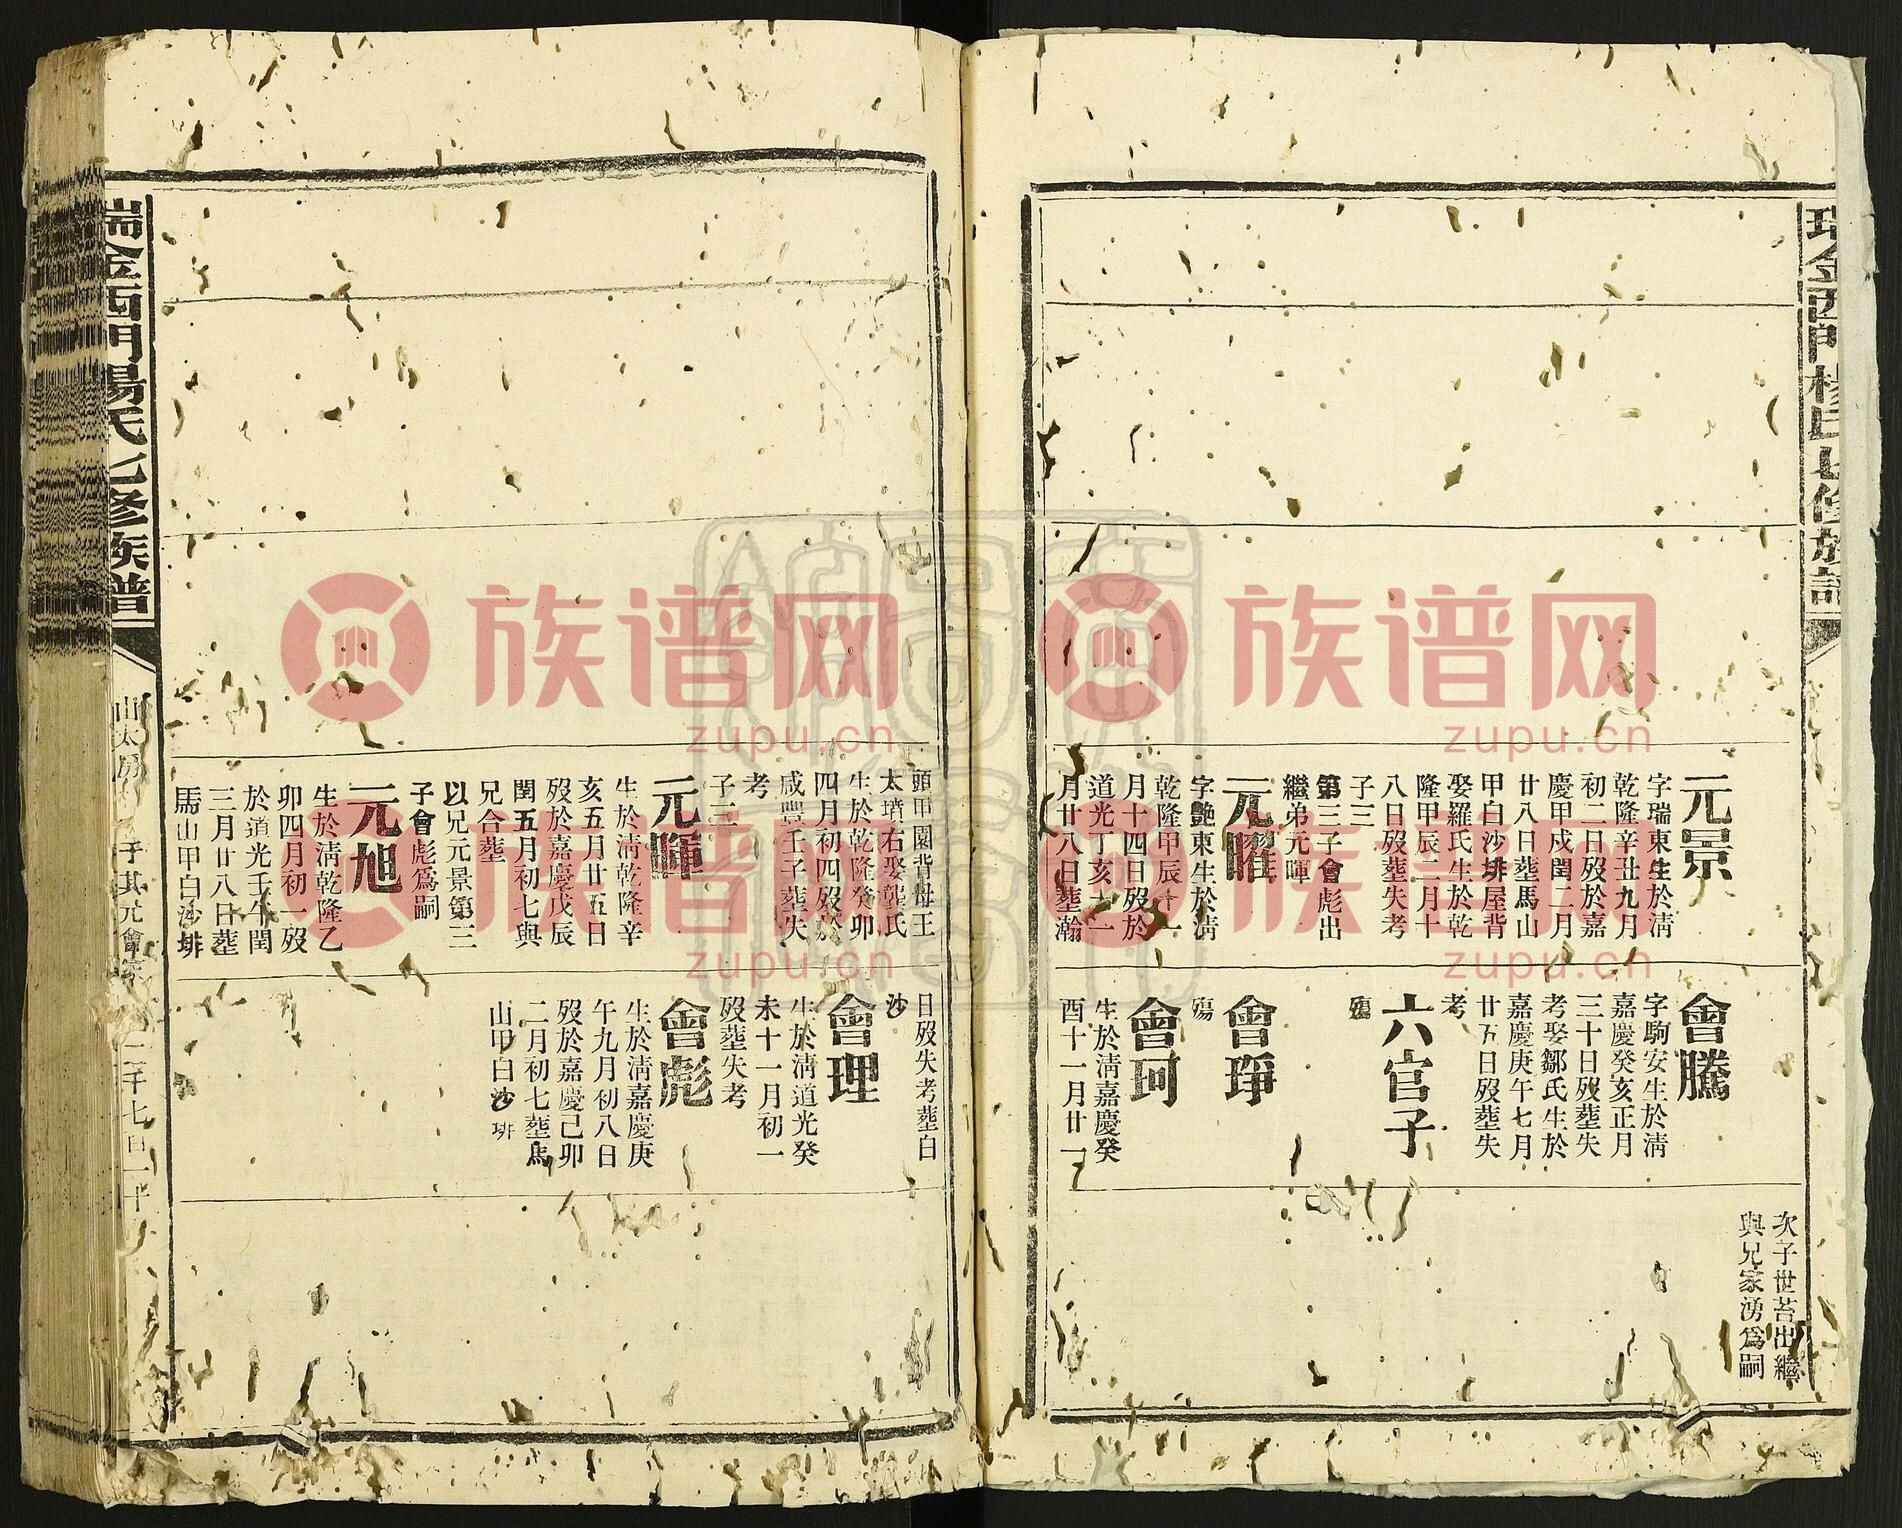 瑞金西門楊氏七修族譜
元景
字瑞東生於淸
乾隆辛丑九月
初二日歿於嘉
慶甲戍閏二月
廿八日塟馬山
甲白沙㘹屋背
娶羅氏生於乾
隆甲辰二月十
八日歿塟失考
子三
第三子會彪出
繼弟元暉
元曜
字艷東生於淸
乾隆甲辰十一
月十四日歿於
道光丁亥十一
月廿八日塟瀚
會騰
字駒安生於淸
嘉慶癸亥正月
三十日歿塟失
考娶鄒氏生於
嘉慶庚午七月
廿五日歿塟失
考
六官子
殤
會琤
殤
會珂
生於淸嘉慶癸
酉十一月廿一
次子世苔出繼
與兄家湧爲嗣
頭甲園背母王
太墳右娶龔氏
生於乾隆癸卯
四月初四歿於
咸豐壬子塟失
考
子二
元暉
生於淸乾隆辛
亥五月廿五日
歿於嘉慶戊辰
閏五月初七與
兄合塟
以兄元景第三
子會彪爲嗣
元旭
生於淸乾隆乙
卯四月初一歿
於道光壬午閏
三月廿八日塟
馬山甲白沙㘹
日歿失考塟白
沙
會理
生於淸道光癸
未十一月初一
歿塟失考
會彪
生於淸嘉慶庚
午九月初八日
歿於嘉慶己卯
二月初七塟馬
山甲白沙㘹
瑞金西門楊氏七修族譜
山太房
子其元會家
二千七百二十
族谱网
zupu.cn
族谱网
zupu.cn
族谱网
zupu.cn
族谱网
zupu.cn